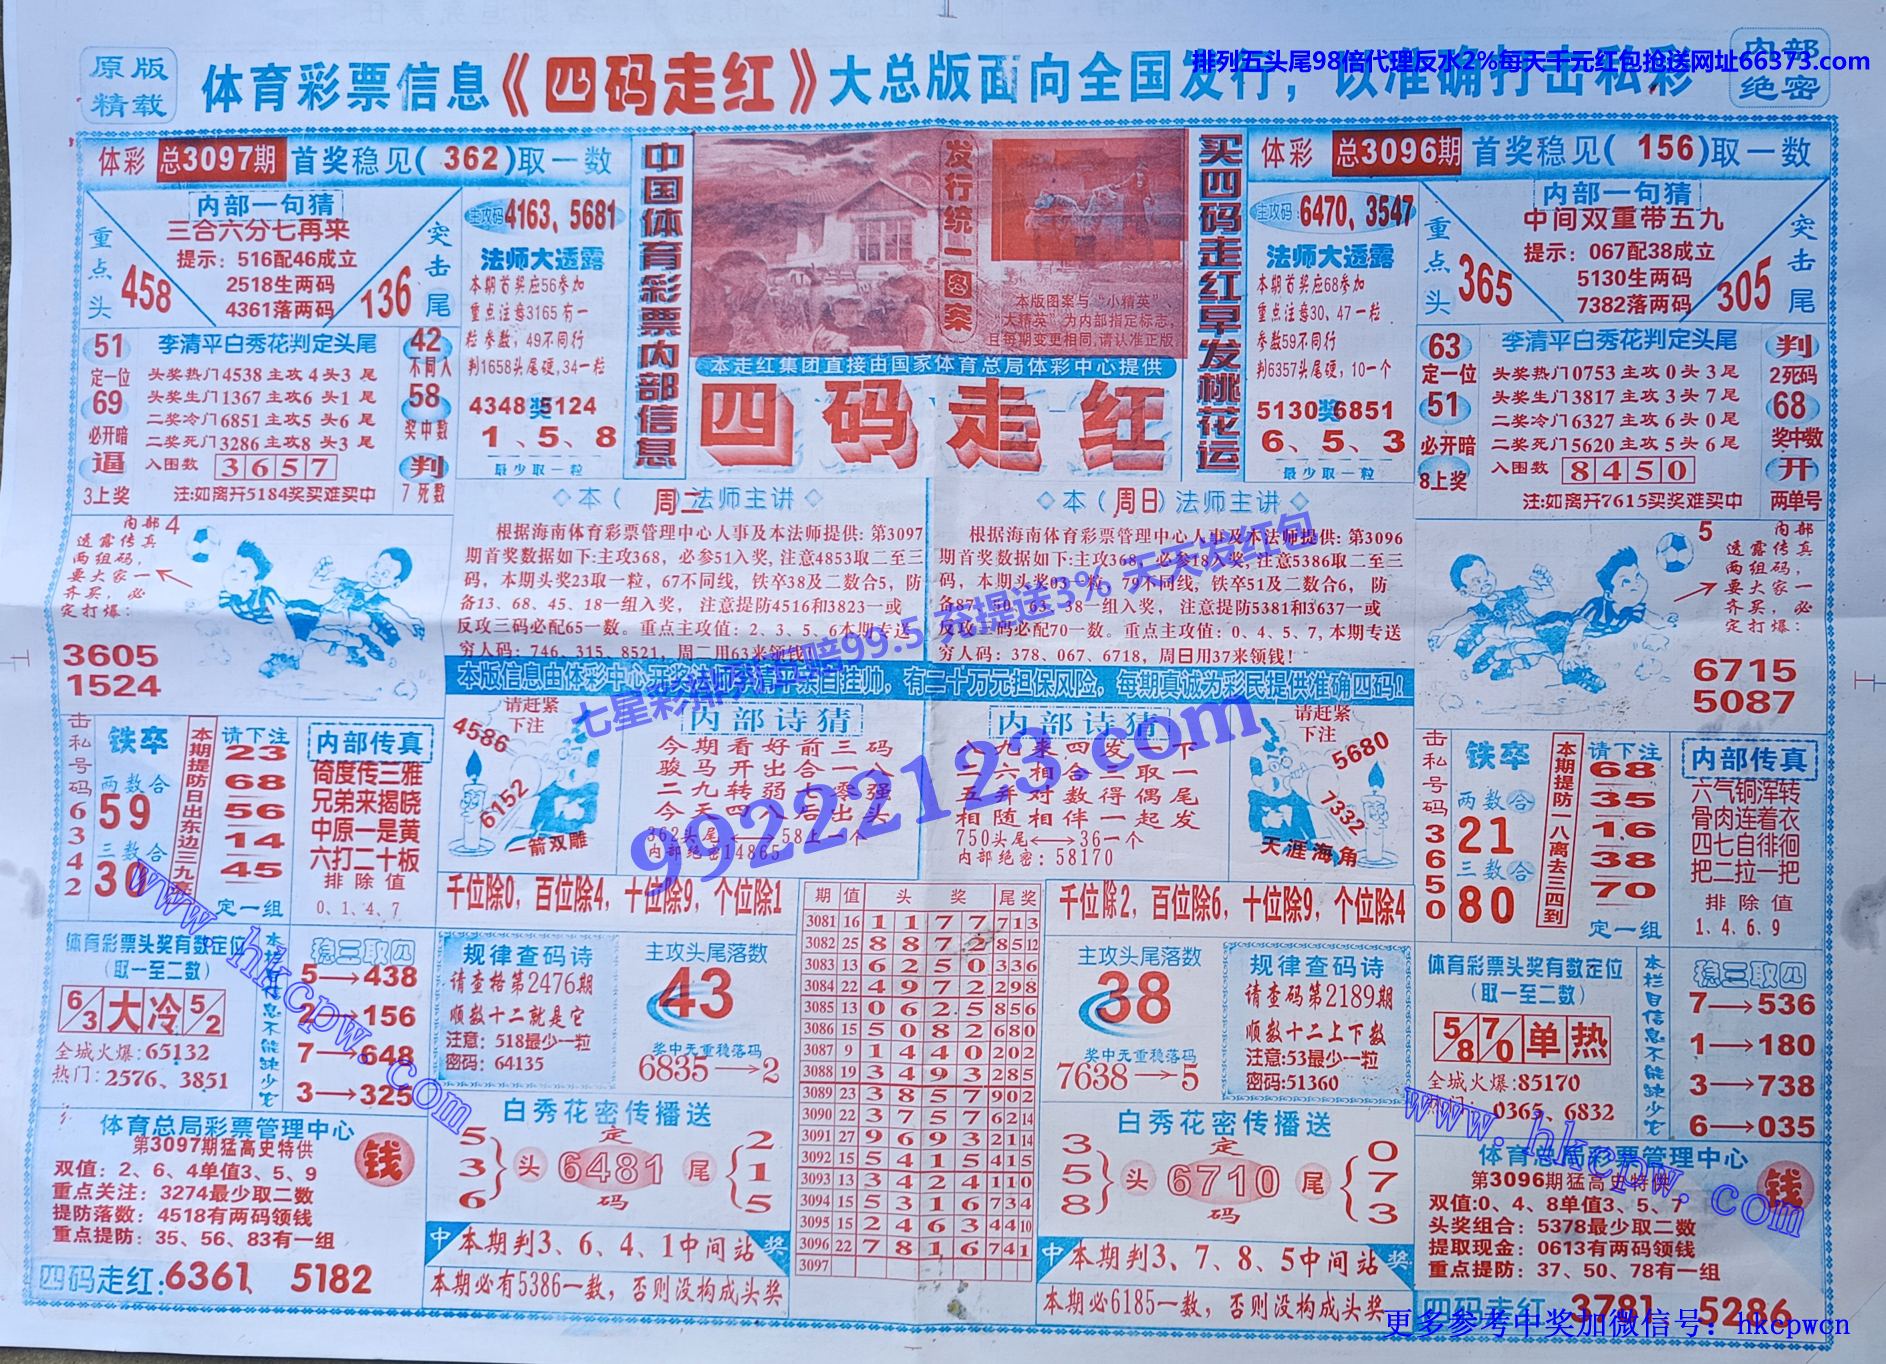 原版
精载
体育彩票信息《四码走红》大总版面向全国发行，以准确打击私彩
内部
绝密
排列五头尾98倍代理反水2%每天千元红包抢送网址66373.com
体彩 总3097期 首奖稳见(362)取一数
内部一句猜
三合六分七再来
提示：516配46成立
2518生两码
4361落两码
重点头
458
突击尾
136
主攻码 4163、5681
法师大透露
本期首奖应56参加
重点注意3165有一
粒参数，49不同行
判1658头尾硬,34一粒
4348奖5124
1、5、8
最少取一粒
51
定一位
69
必开暗
逼
3上奖
李清平白秀花判定头尾
头奖热门4538主攻4头3尾
头奖生门1367主攻6头1尾
二奖冷门6851主攻5头6尾
二奖死门3286主攻8头3尾
入围数 3657
注:如离开5184奖买难买中
42
不同人
58
奖中数
判
7死数
中国体育彩票内部信息
发行统一图案
本版图案与“小精英”、
“大精英”为内部指定标志，
且每期变更相同,请认准正版
本走红集团直接由国家体育总局体彩中心提供
四码走红
买四码走红早发桃花运
体彩 总3096期 首奖稳见(156)取一数
主攻码:6470、3547
法师大透露
本期首奖应68参加
重点注意30、47一粒
参数59不同行
判6357头尾硬,10一个
5130奖6851
6、5、3
最少取一粒
内部一句猜
中间双重带五九
提示：067配38成立
5130生两码
7382落两码
重点头
365
突击尾
305
63
定一位
51
必开暗
8上奖
李清平白秀花判定头尾
头奖热门0753主攻0头3尾
头奖生门3817主攻3头7尾
二奖冷门6327主攻6头0尾
二奖死门5620主攻5头6尾
入围数 8450
注:如离开7615买奖难买中
判
2死码
68
奖中数
开
两单号
内部4
透露传真
两组码，
要大家一
齐买，必
定打爆：
3605
1524
◇本(周二)法师主讲◇
根据海南体育彩票管理中心人事及本法师提供：第3097
期首奖数据如下:主攻368，必参51入奖，注意4853取二至三
码，本期头奖23取一粒，67不同线，铁卒38及二数合5，防
备13、68、45、18一组入奖， 注意提防4516和3823一或
反攻三码必配65一数。重点主攻值：2、3、5、6本期专送
穷人码：746、315、8521，周二用63来领钱！
◇本(周日)法师主讲◇
根据海南体育彩票管理中心人事及本法师提供：第3096
期首奖数据如下：主攻368，必参18入奖，注意5386取二至三
码，本期头奖03一粒，79不同线，铁卒51及二数合6，防
备87、50、63、38一组入奖， 注意提防5381和3637一或
反攻三码必配70一数。重点主攻值：0、4、5、7,本期专送
穷人码：378、067、6718，周日用37来领钱!
5
内部
透露传真
两组码，
要大家一
齐买，必
定打爆：
6715
5087
本版信息由体彩中心开奖法师李清平亲自挂帅，有二十万元担保风险，每期真诚为彩民提供准确四码！
七星彩排列五赔99.5 充提送3% 天天发红包
99222123.com
击私号码6342
铁卒
两数合
59
三数合
30
请下注
23
68
56
14
45
定一组
内部传真
倚度传三雅
兄弟来揭晓
中原一是黄
六打二十板
排除值
0、1、4、7
请赶紧
下注
4586
6152
一箭双雕
内部诗猜
今期看好前三码
骏马开出合一八
二九转弱七零强
今天四八后出头
362头尾⟷58上一个
内部绝密14865
内部诗猜
五年对数得偶尾
相随相伴一起发
750头尾⟷36一个
内部绝密：58170
请赶紧
下注
5680
7332
天涯海角
击私号码3650
铁卒
两数合
21
三数合
80
本期提防一八离去三四到
请下注
68
35
16
38
70
定一组
内部传真
六气铜浑转
骨肉连着衣
四七自徘徊
把二拉一把
排除值
1、4、6、9
千位除0，百位除4，十位除9，个位除1
千位除2，百位除6，十位除9，个位除4
体育彩票头奖有数定位
(取一至二数)
6/3大冷5/2
全城火爆:65132
热门:2576、3851
稳三取四
5→438
2→156
7→648
3→325
规律查码诗
请查格第2476期
顺数十二就是它
注意：518最少一粒
密码：64135
主攻头尾落数
43
奖中无重稳落码
6835→2
期 值 头 奖 尾奖
3081 16 1 1 7 7 713
3082 25 8 8 7 2 8512
3083 13 6 2 5 0 336
3084 22 4 9 7 2 298
3085 13 0 6 2 5 856
3086 15 5 0 8 2 680
3087 9 1 4 4 0 202
3088 19 3 4 9 3 285
3089 23 3 8 5 7 902
3090 22 3 7 5 7 6214
3091 27 9 6 9 3 2114
3092 15 5 4 1 5 415
3093 13 3 4 2 4 110
3094 15 5 3 1 6 734
3095 15 2 4 6 3 4410
3096 22 7 8 1 6 741
3097
主攻头尾落数
38
奖中无重稳落码
7638→5
规律查码诗
请查码第2189期
顺数十二上下数
注意:53最少一粒
密码:51360
体育彩票头奖有数定位
(取一至二数)
5/8 7/0 单热
全城火爆:85170
热门：0365、6832
本栏目信息不能缺少它
稳三取四
7→536
1→180
3→738
6→035
体育总局彩票管理中心
第3097期猛高史特供
钱
双值：2、6、4单值3、5、9
重点关注：3274最少取二数
提防落数：4518有两码领钱
重点提防：35、56、83有一组
四码走红:6361、5182
白秀花密传播送
5
3
6
头
定
6481
码
尾
2
1
5
中 本期判3、6、4、1中间站 奖
本期必有5386一数，否则没构成头奖
白秀花密传播送
3
5
8
头
定
6710
码
尾
0
7
3
中 本期判3、7、8、5中间站 奖
本期必6185一数，否则没构成头奖
体育总局彩票管理中心
第3096期猛高史特供
钱
双值:0、4、8单值3、5、7
头奖组合：5378最少取二数
提取现金：0613有两码领钱
重点提防：37、50、78有一组
四码走红:3781、5286
www.hkcpw.com
www.hkcpw.com
更多参考中奖加微信号：hkcpwcn